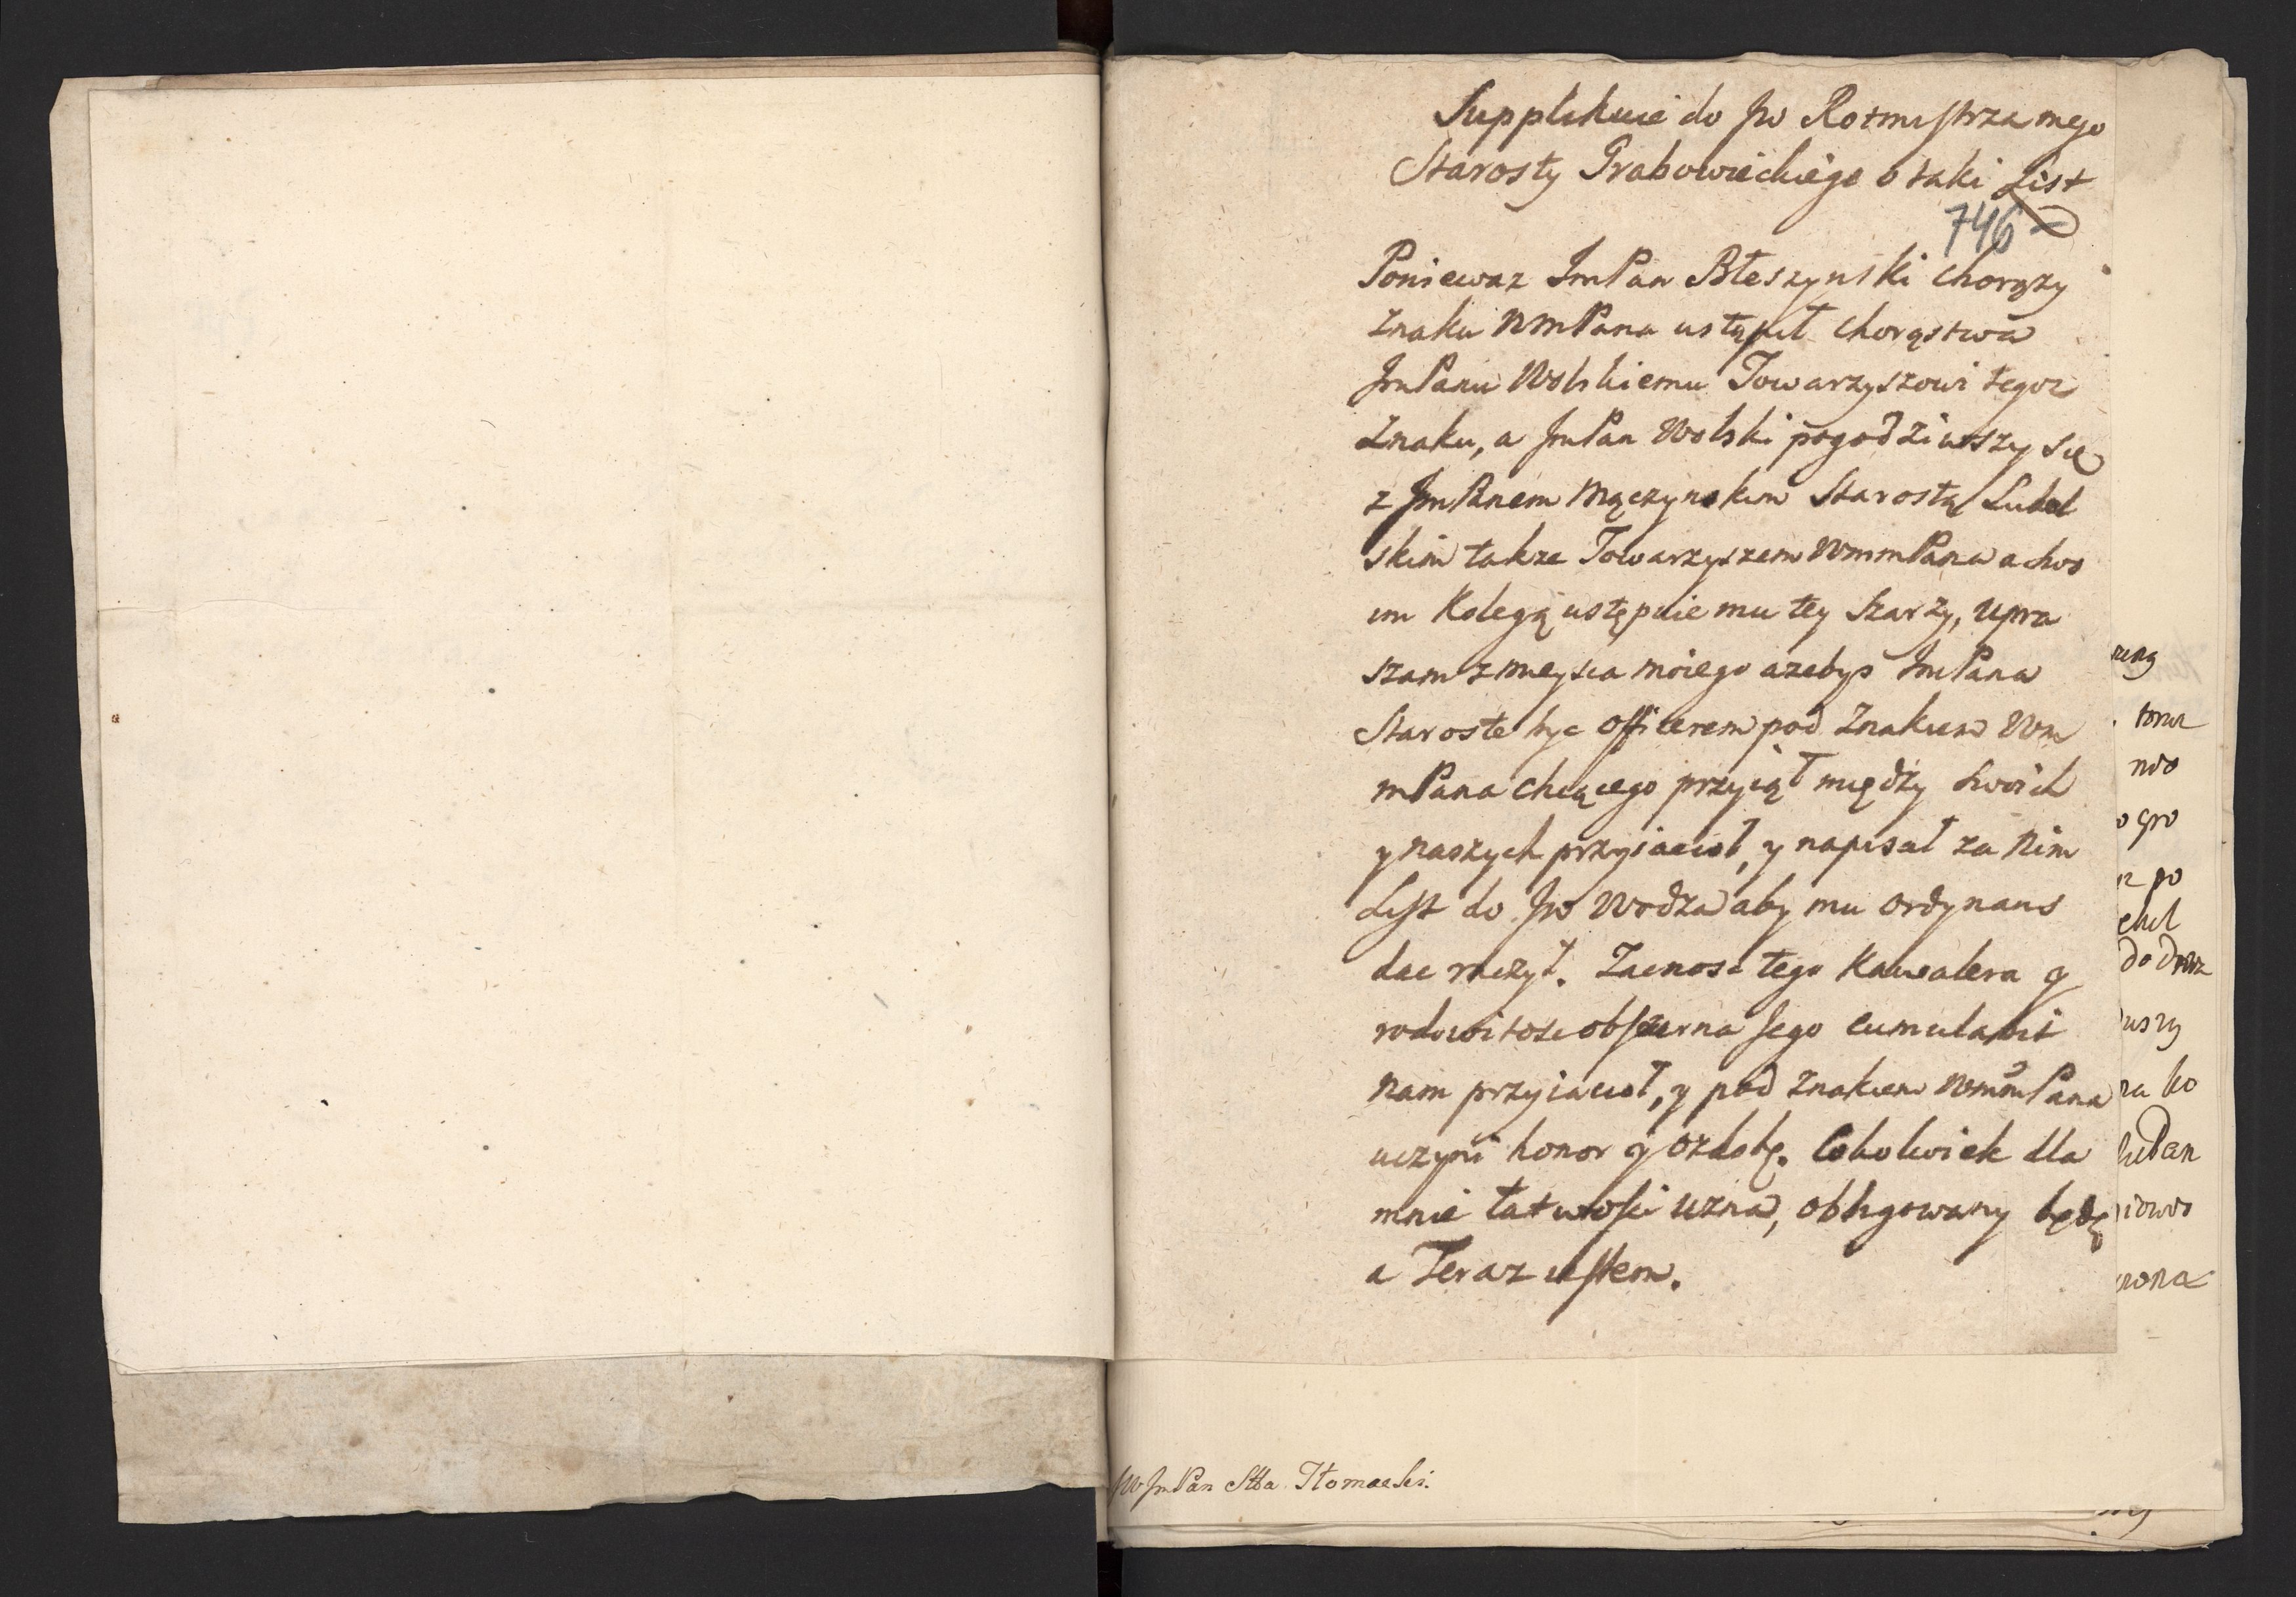 Supplikuie do Jw Rotmistrza mego
Starosty Grabowieckiego o taki List
746
Poniewaz JmPan Błeszynski Chorązy
Znaku WmPana ustąpił Chorąstwa
JmPanu Wolskiemu Towarzyszowi tegoz
Znaku, a JmPan Wolski pogodziwszy się
z JmPanem Mączynskim Starostą Lubel
skim takze Towarzyszem WmmPana a swo
im Kolegą ustępuie mu tey Szarzy, Upra
szam z mieysca moiego azebys JmPana
Staroste byc Officerem pod Znakiem Wm
mPana Chcącego przyiął między Swoich
y naszych przyiacioł, y napisał za Nim
List do Jw Wodza aby mu Ordynans
dac raczył. Zacnosc tego Kawalera y
rodowitosc obszerna Jego cumulabit
Nam przyiacioł, y pod Znakiem WmmPana
uczyni honor y ozdobę. Cokolwiek dla
mnie łatwosci uzna, obligowany będę
a Teraz iestem.
tomu
no
po
do
uszy
ko
Pan
JW JmPan Stta Tłomacki.